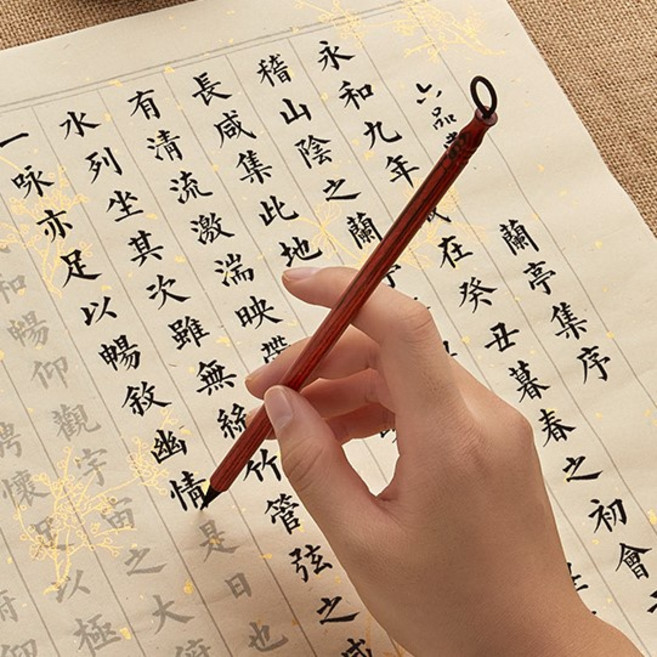 蘭亭集序
六品
永和九年歲在癸丑暮春之初會于
稽山陰之蘭
長咸集此地
有清流激湍映帶
水列坐其次雖無絲竹管弦之盛
一詠亦足以暢敘幽情是日也
和暢仰觀宇宙之大俯
騁懷足以極
仰